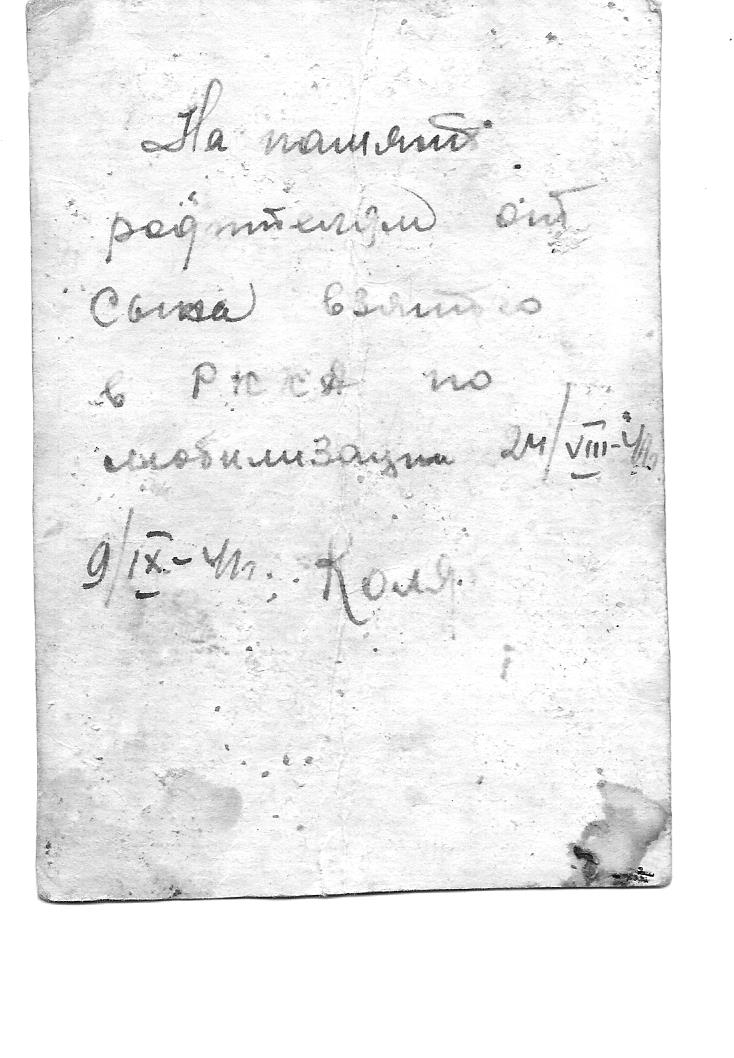 На память
родителям от
сына взятого
в РККА по
мобилизации 24/VIII-41г.
9/IX-41г. Коля.